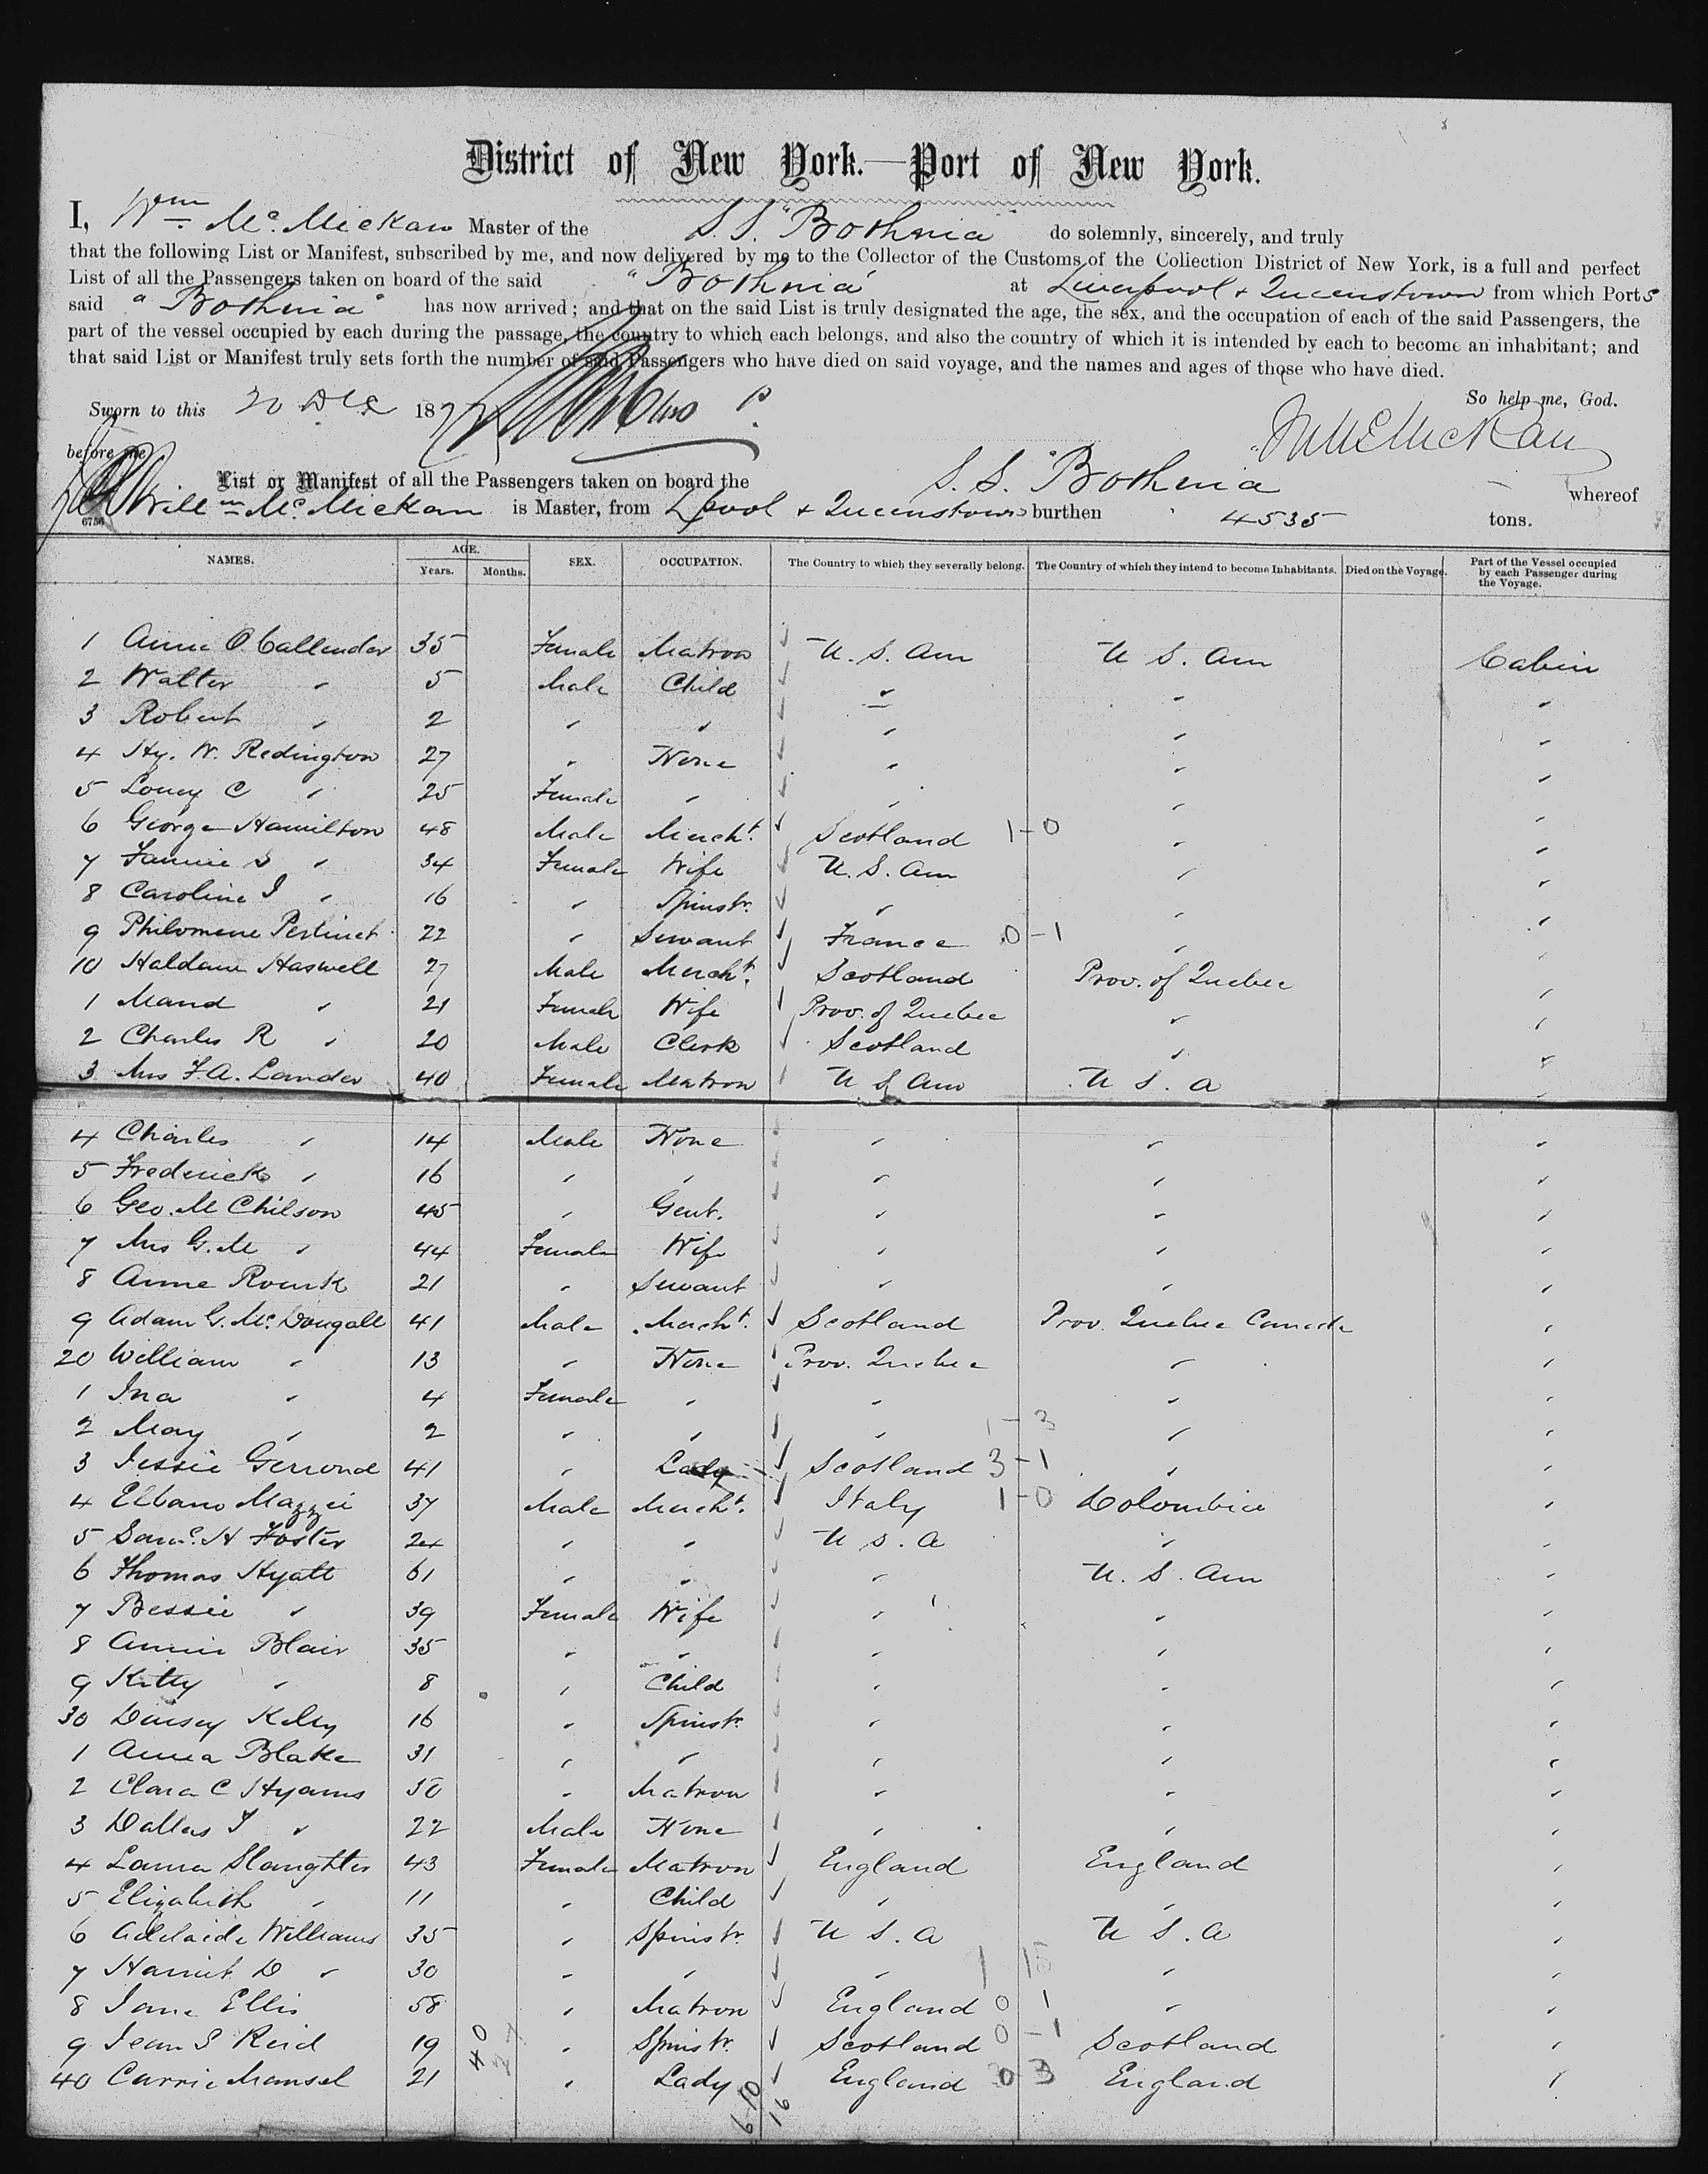 District of New York.—Port of New York.
I, Wm McMickan Master of the S.S. "Bothnia" do solemnly, sincerely, and truly
that the following List or Manifest, subscribed by me, and now delivered by me to the Collector of the Customs of the Collection District of New York, is a full and perfect
List of all the Passengers taken on board of the said "Bothnia" at Liverpool + Queenstown from which Ports
said "Bothnia" has now arrived; and that on the said List is truly designated the age, the sex, and the occupation of each of the said Passengers, the
part of the vessel occupied by each during the passage, the country to which each belongs, and also the country of which it is intended by each to become an inhabitant; and
that said List or Manifest truly sets forth the number of said Passengers who have died on said voyage, and the names and ages of those who have died.
So help me, God.
Sworn to this 20 Dec 187
WMcMickan
before me
List or Manifest of all the Passengers taken on board the S.S. "Bothnia whereof
Willm McMickan is Master, from Lpool + Queenstown burthen 4535 tons.
6756
NAMES. AGE. SEX. OCCUPATION. The Country to which they severally belong. The Country of which they intend to become Inhabitants. Died on the Voyage. Part of the Vessel occupied by each Passenger during the Voyage.
Years. Months.
1 Annie O Callender 35 Female Matron U.S. Am U S. Am Cabin
2 Walter " 5 Male Child " " "
3 Robert " 2 " " " " "
4 Hy. W. Redington 27 " None " " "
5 Loucy C " 25 Female " " " "
6 George Hamilton 48 Male Mercht. Scotland 1-0 " "
7 Fannie S " 34 Female Wife U.S. Am " "
8 Caroline I " 16 " Spinstr. " " "
9 Philomene Pertinet 22 " Servant France 0-1 " "
10 Haldane Haswell 27 Male Mercht. Scotland Prov. of Quebec "
1 Maud " 21 Female Wife Prov. of Quebec " "
2 Charles R " 20 Male Clerk Scotland " "
3 Mrs F.A. Lander 40 Female Matron U S Am U S. A "
4 Charles " 14 Male None " " "
5 Frederick " 16 " " " " "
6 Geo. M Chilson 45 " Gent. " " "
7 Mrs G.M " 44 Female Wife " " "
8 Anne Rourk 21 " Servant " " "
9 Adam G. McDougall 41 Male Mercht. Scotland Prov. Quebec Canada "
20 William " 13 " None Prov. Quebec " "
1 Ina " 4 Female " " " "
2 May " 2 " " " 1-3 " "
3 Jessie Gerrond 41 " Lady Scotland 3-1 " "
4 Elbano Mazzei 37 Male Mercht. Italy 1-0 Colombia "
5 Saml. H Foster 24 " " U S. A " "
6 Thomas Hyatt 61 " " " U. S. Am "
7 Bessie " 39 Female Wife " " "
8 Annie Blair 35 " " " " "
9 Kitty " 8 " Child " " "
30 Daisey Kelly 16 " Spinstr. " " "
1 Anna Blake 31 " " " " "
2 Clara C Hyams 50 " Matron " " "
3 Dallas I " 22 Male None " " "
4 Laura Slaughter 43 Female Matron England England "
5 Elizabeth " 11 " Child " " "
6 Adelaide Williams 35 " Spinstr. U S. A U S. A "
7 Harriet D " 30 " " " 1 15 " "
8 Jane Ellis 58 " Matron England 0 1 " "
9 Jean S Reid 19 " Spinstr. Scotland 0-1 Scotland "
40 Carrie Mansel 21 " Lady England 0 3 England "
40
27
6-10
16